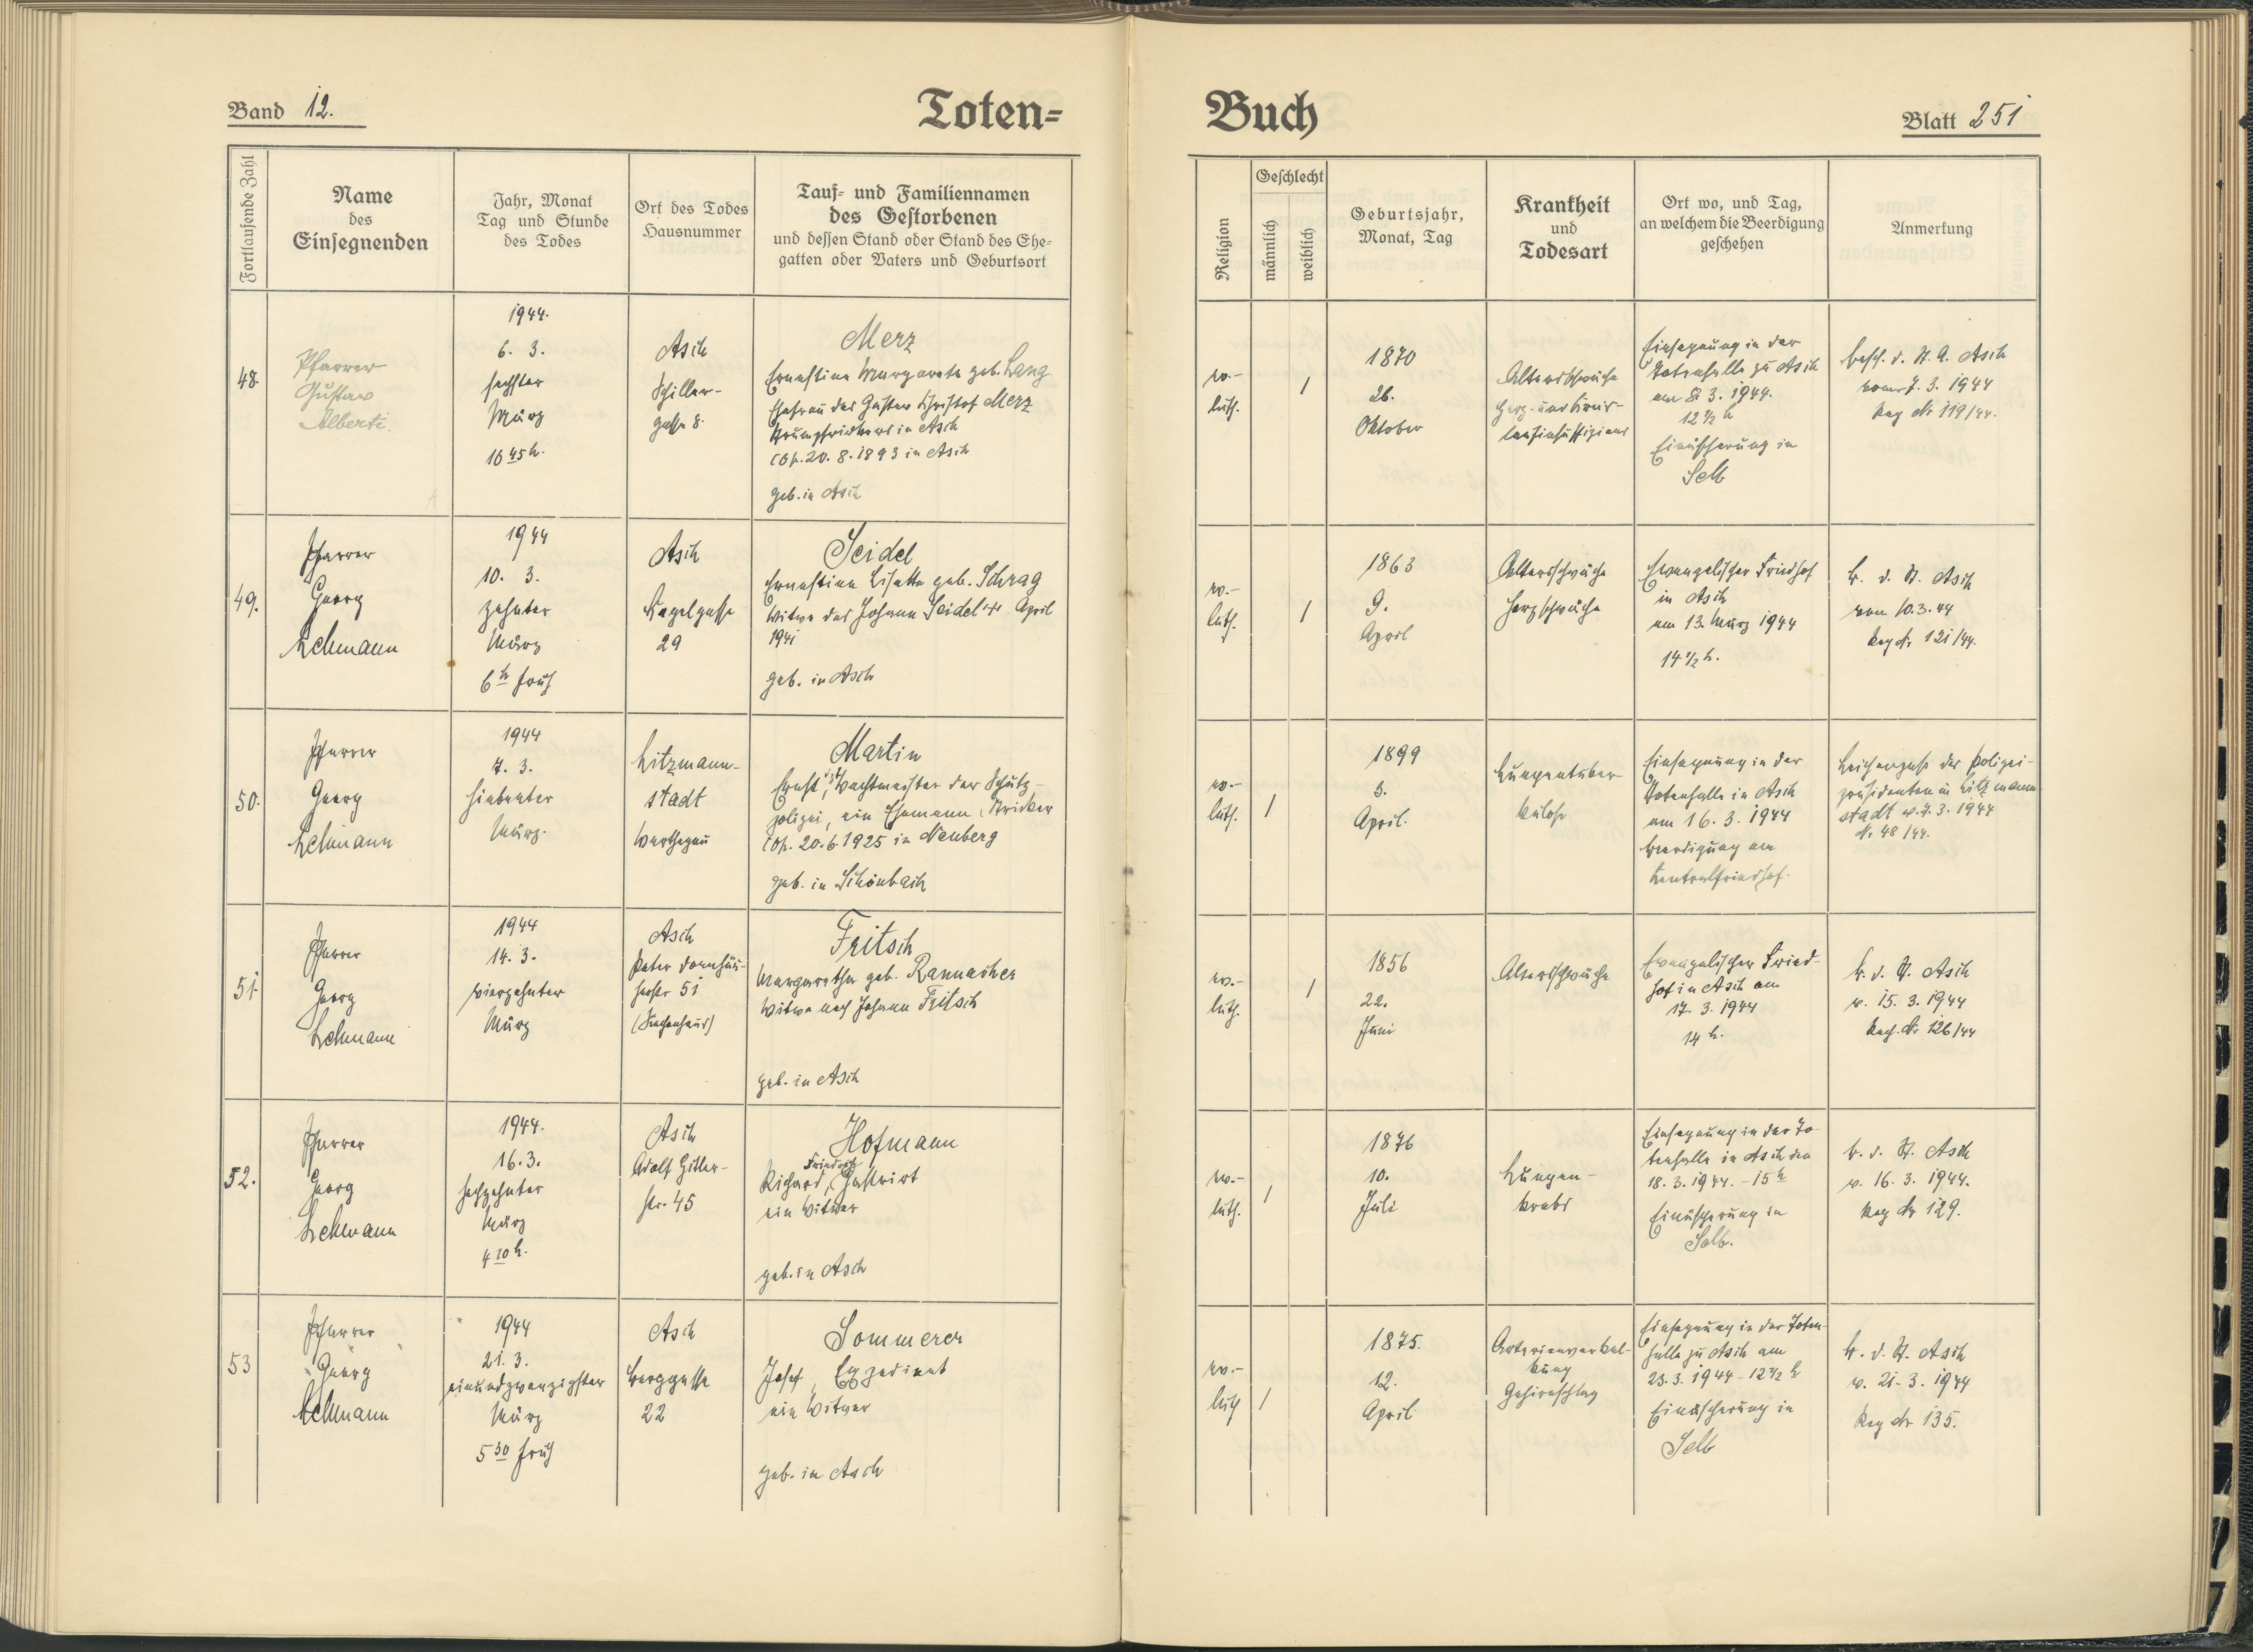 Band 12.
Toten=
Fortlaufende Zahl
Name
des
Einsegnenden
Jahr, Monat
Tag und Stunde
des Todes
Ort des Todes
Hausnummer
Tauf= und Familiennamen
des Gestorbenen
und dessen Stand oder Stand des Ehe=
gatten oder Vaters und Geburtsort
48.
Pfarrer
Gustav
Alberti.
1944.
6. 3.
sechster
März
16 45 h.
Asch
Schiller-
gasse 8.
Merz
Ernestine Margareta geb. Lang
Ehefrau des Gustav Christof Merz
in Asch
cop. 20. 8. 1893 in Asch
geb. in Asch
49.
Pfarrer
Georg
Lehmann
1944
10. 3.
zehnter
März
6 h früh
Asch
29
Seidel
Ernestine Lisette geb. Schrag
Witwe des Johann Seidel + April
1941
geb. in Asch
50.
Pfarrer
Georg
Lehmann
1944
7. 3.
siebenter
März.
Litzmann-
stadt
Warthegau
Martin
Ernst, Wachtmeister der Schutz-
polizei, ein Ehemann, Stricker
cop. 20. 6. 1925 in Neuberg
geb. in Schönbach
51
Pfarrer
Georg
Lehmann
1944
14. 3.
vierzehnter
März
Asch
Peter Dornhäu-
serstr 51
(Siechenhaus)
Fritsch
Margaretha geb. Rannacher
Witwe nach Johann Fritsch
geb. in Asch
52.
Pfarrer
Georg
Lehmann
1944.
16. 3.
sechzehnter
März
4 20 h.
Asch
Adolf Hitler-
str. 45
Hofmann
Friedrich
Richard, Gastwirt
ein Witwer
geb. in Asch
53
Pfarrer
Georg
Lehmann
1944
21. 3.
einundzwanzigster
März
5 30 früh
Asch
Berggasse
22
Sommerer
Josef, Expedient
ein Witwer
geb. in Asch
Buch
Blatt 251
Religion
Geschlecht
männlich
weiblich
Geburtsjahr,
Monat, Tag
Krankheit
und
Todesart
Ort wo, und Tag,
an welchem die Beerdigung
geschehen
Anmerkung
ev.-
luth.
1
1870
26.
Oktober
Altersschwäche
Herz- und Kreis-
laufinsuffizienz
Einsegnung in der
Totenhalle zu Asch
am 8. 3. 1944.
12 1/2 h
Einäscherung in
Selb
besch. d. St. A. Asch
vom 7. 3. 1944
Reg Nr 119/44.
ev.-
luth.
1
1863
9.
April
Altersschwäche
Herzschwäche
Evangelischer Friedhof
in Asch
am 13. März 1944
14 1/2 h.
b. d. St. Asch
vom 10. 3. 44
Reg Nr 121/44.
ev.-
luth.
1
1899
3.
April.
Lungentuber-
kulose
Einsegnung in der
Totenhalle in Asch
am 16. 3. 1944
Beerdigung am
Zentralfriedhof.
Leichenpass der Polizei-
präsidenten in Litzmann-
stadt v. 7. 3. 1944
Nr. 48/44.
ev.-
luth.
1
1856
22.
Juni
Altersschwäche
Evangelischer Fried-
hof in Asch am
17. 3. 1944
14 h.
b. d. St. Asch
v. 15. 3. 1944
Reg. Nr 126/44
ev.-
luth.
1
1876
10.
Juli
Lungen-
krebs
Einsegnung in der To-
tenhalle in Asch den
18. 3. 1944. - 15 h
Einäscherung in
Selb.
b. d. St. Asch
v. 16. 3. 1944.
Reg Nr 129.
ev.-
luth
1
1875.
12.
April
Arterienverkal-
kung
Gehirnschlag
Einsegnung in der Toten-
halle zu Asch am
23. 3. 1944 - 12 1/2 h
Einäscherung in
Selb
b. d. St. Asch
v. 21. 3. 1944
Reg Nr 135.